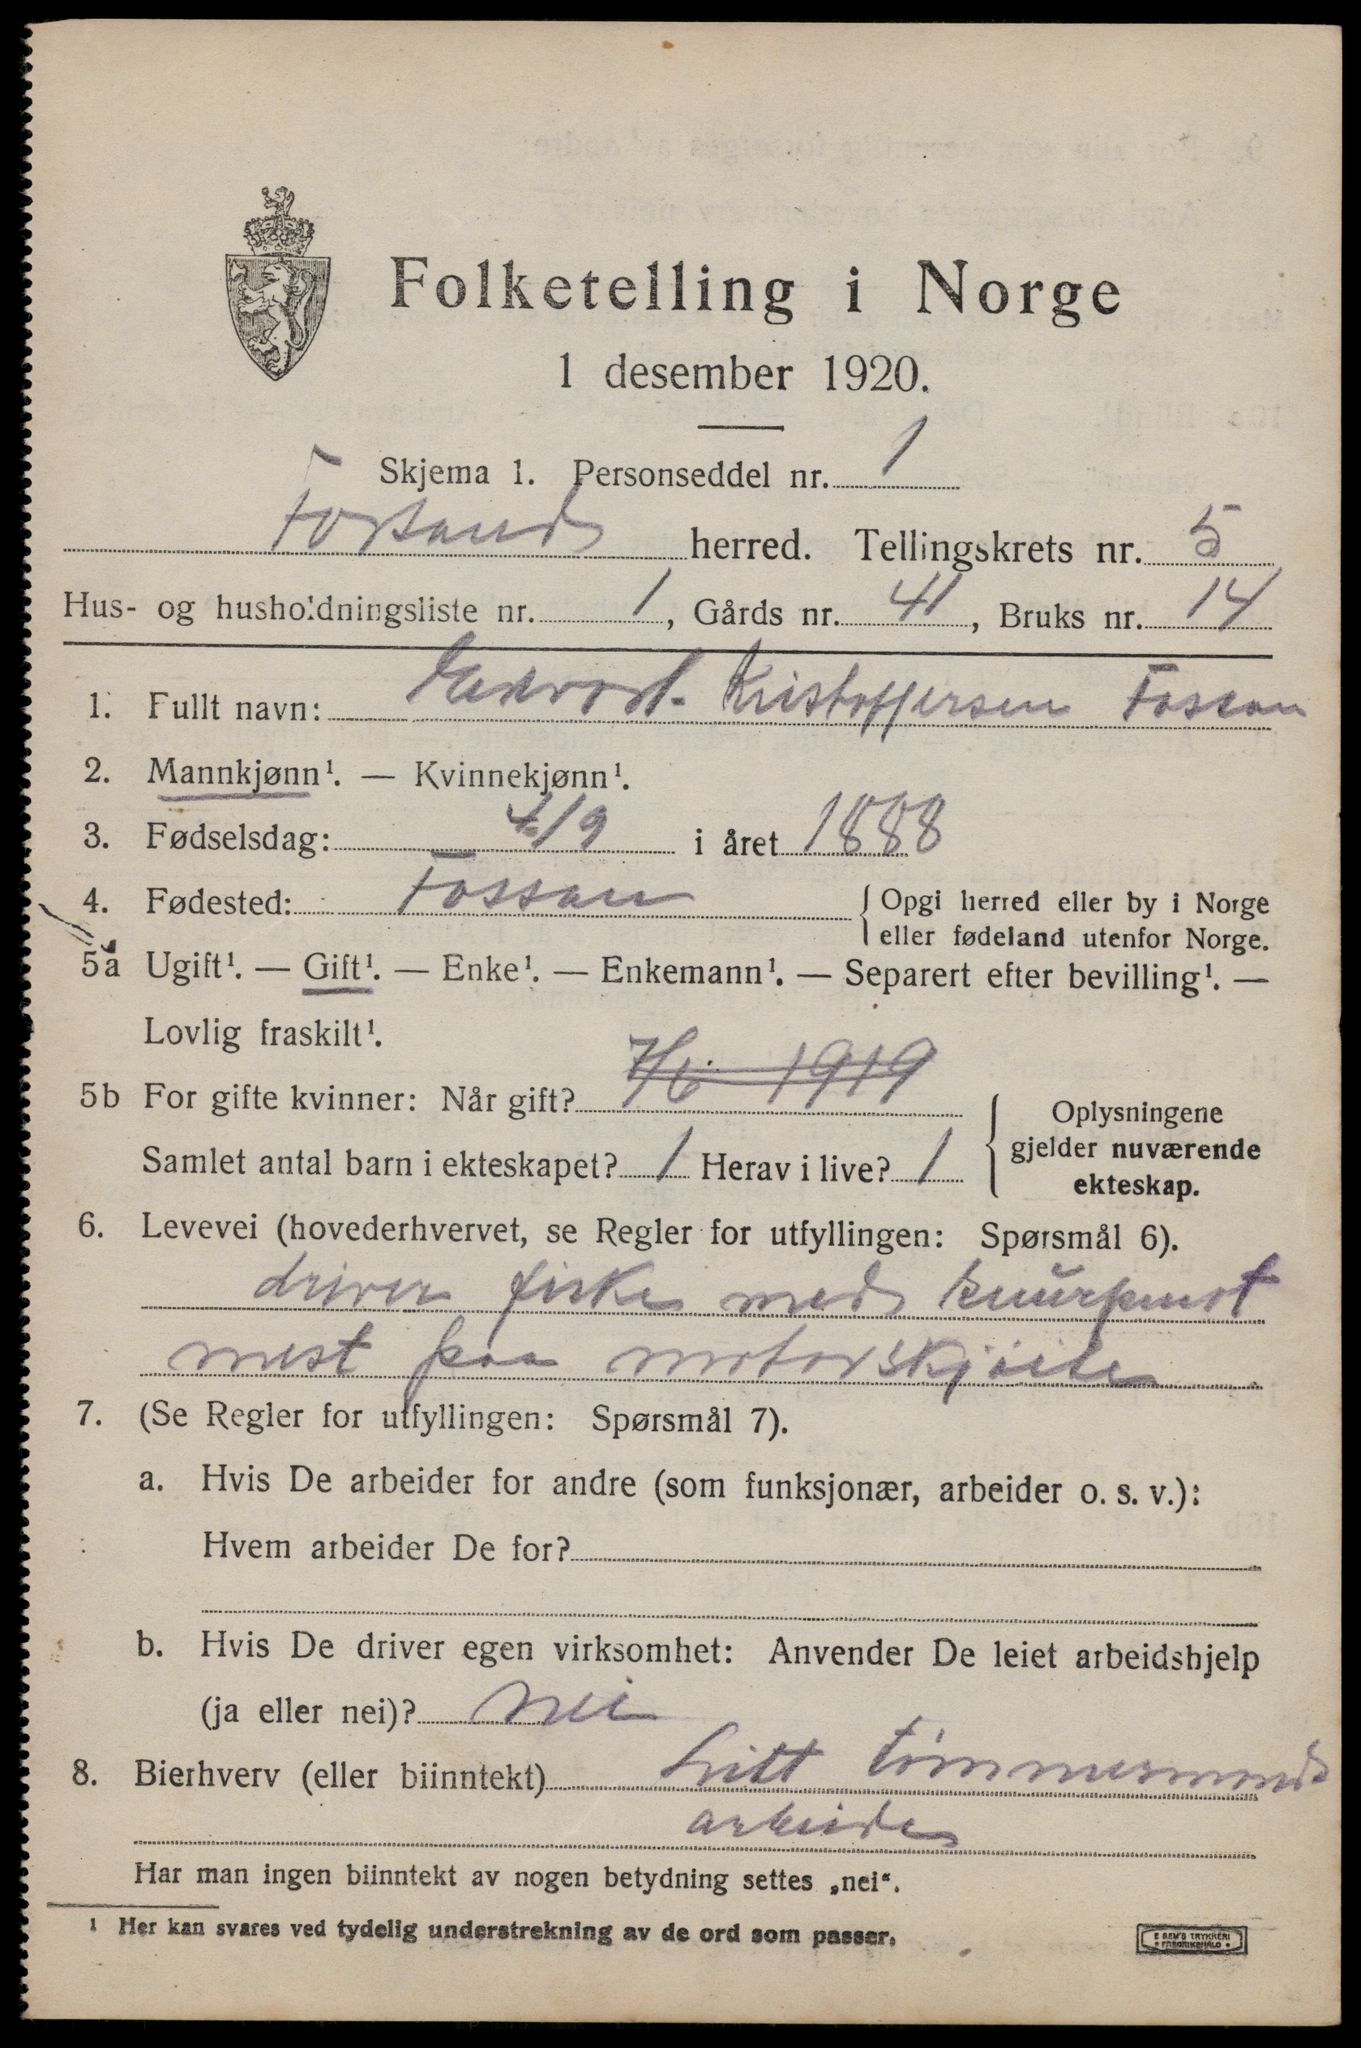 Folketelling i Norge
1 desember 1920.
Skjema 1. Personseddel nr. 1
Forsands herred. Tellingskrets nr. 5
Hus- og husholdningsliste nr. 1, Gårds nr. 41, Bruks nr. 14
1. Fullt navn: Edvard Kristoffersen Fossan
2. Mannkjønn¹. — Kvinnekjønn¹.
3. Fødselsdag: 4/9 i året 1888
4. Fødested: Fossan { Opgi herred eller by i Norge
eller fødeland utenfor Norge.
5a Ugift¹. — Gift¹. — Enke¹. — Enkemann¹. — Separert efter bevilling¹. —
Lovlig fraskilt¹.
5b For gifte kvinner: Når gift? 7/6 1919
Samlet antal barn i ekteskapet? 1 Herav i live? 1
{ Oplysningene
gjelder nuværende
ekteskap.
6. Levevei (hovederhvervet, se Regler for utfyllingen: Spørsmål 6).
driver fiske med
mest paa motorskjøite
7. (Se Regler for utfyllingen: Spørsmål 7).
a. Hvis De arbeider for andre (som funksjonær, arbeider o. s. v.):
Hvem arbeider De for?
b. Hvis De driver egen virksomhet: Anvender De leiet arbeidshjelp
(ja eller nei)? nei
8. Bierhverv (eller biinntekt) Litt tømmermands
arbeide
Har man ingen biinntekt av nogen betydning settes „nei“.
¹ Her kan svares ved tydelig understrekning av de ord som passer.
E SEM'S TRYKKERI
FREDRIKSHALD